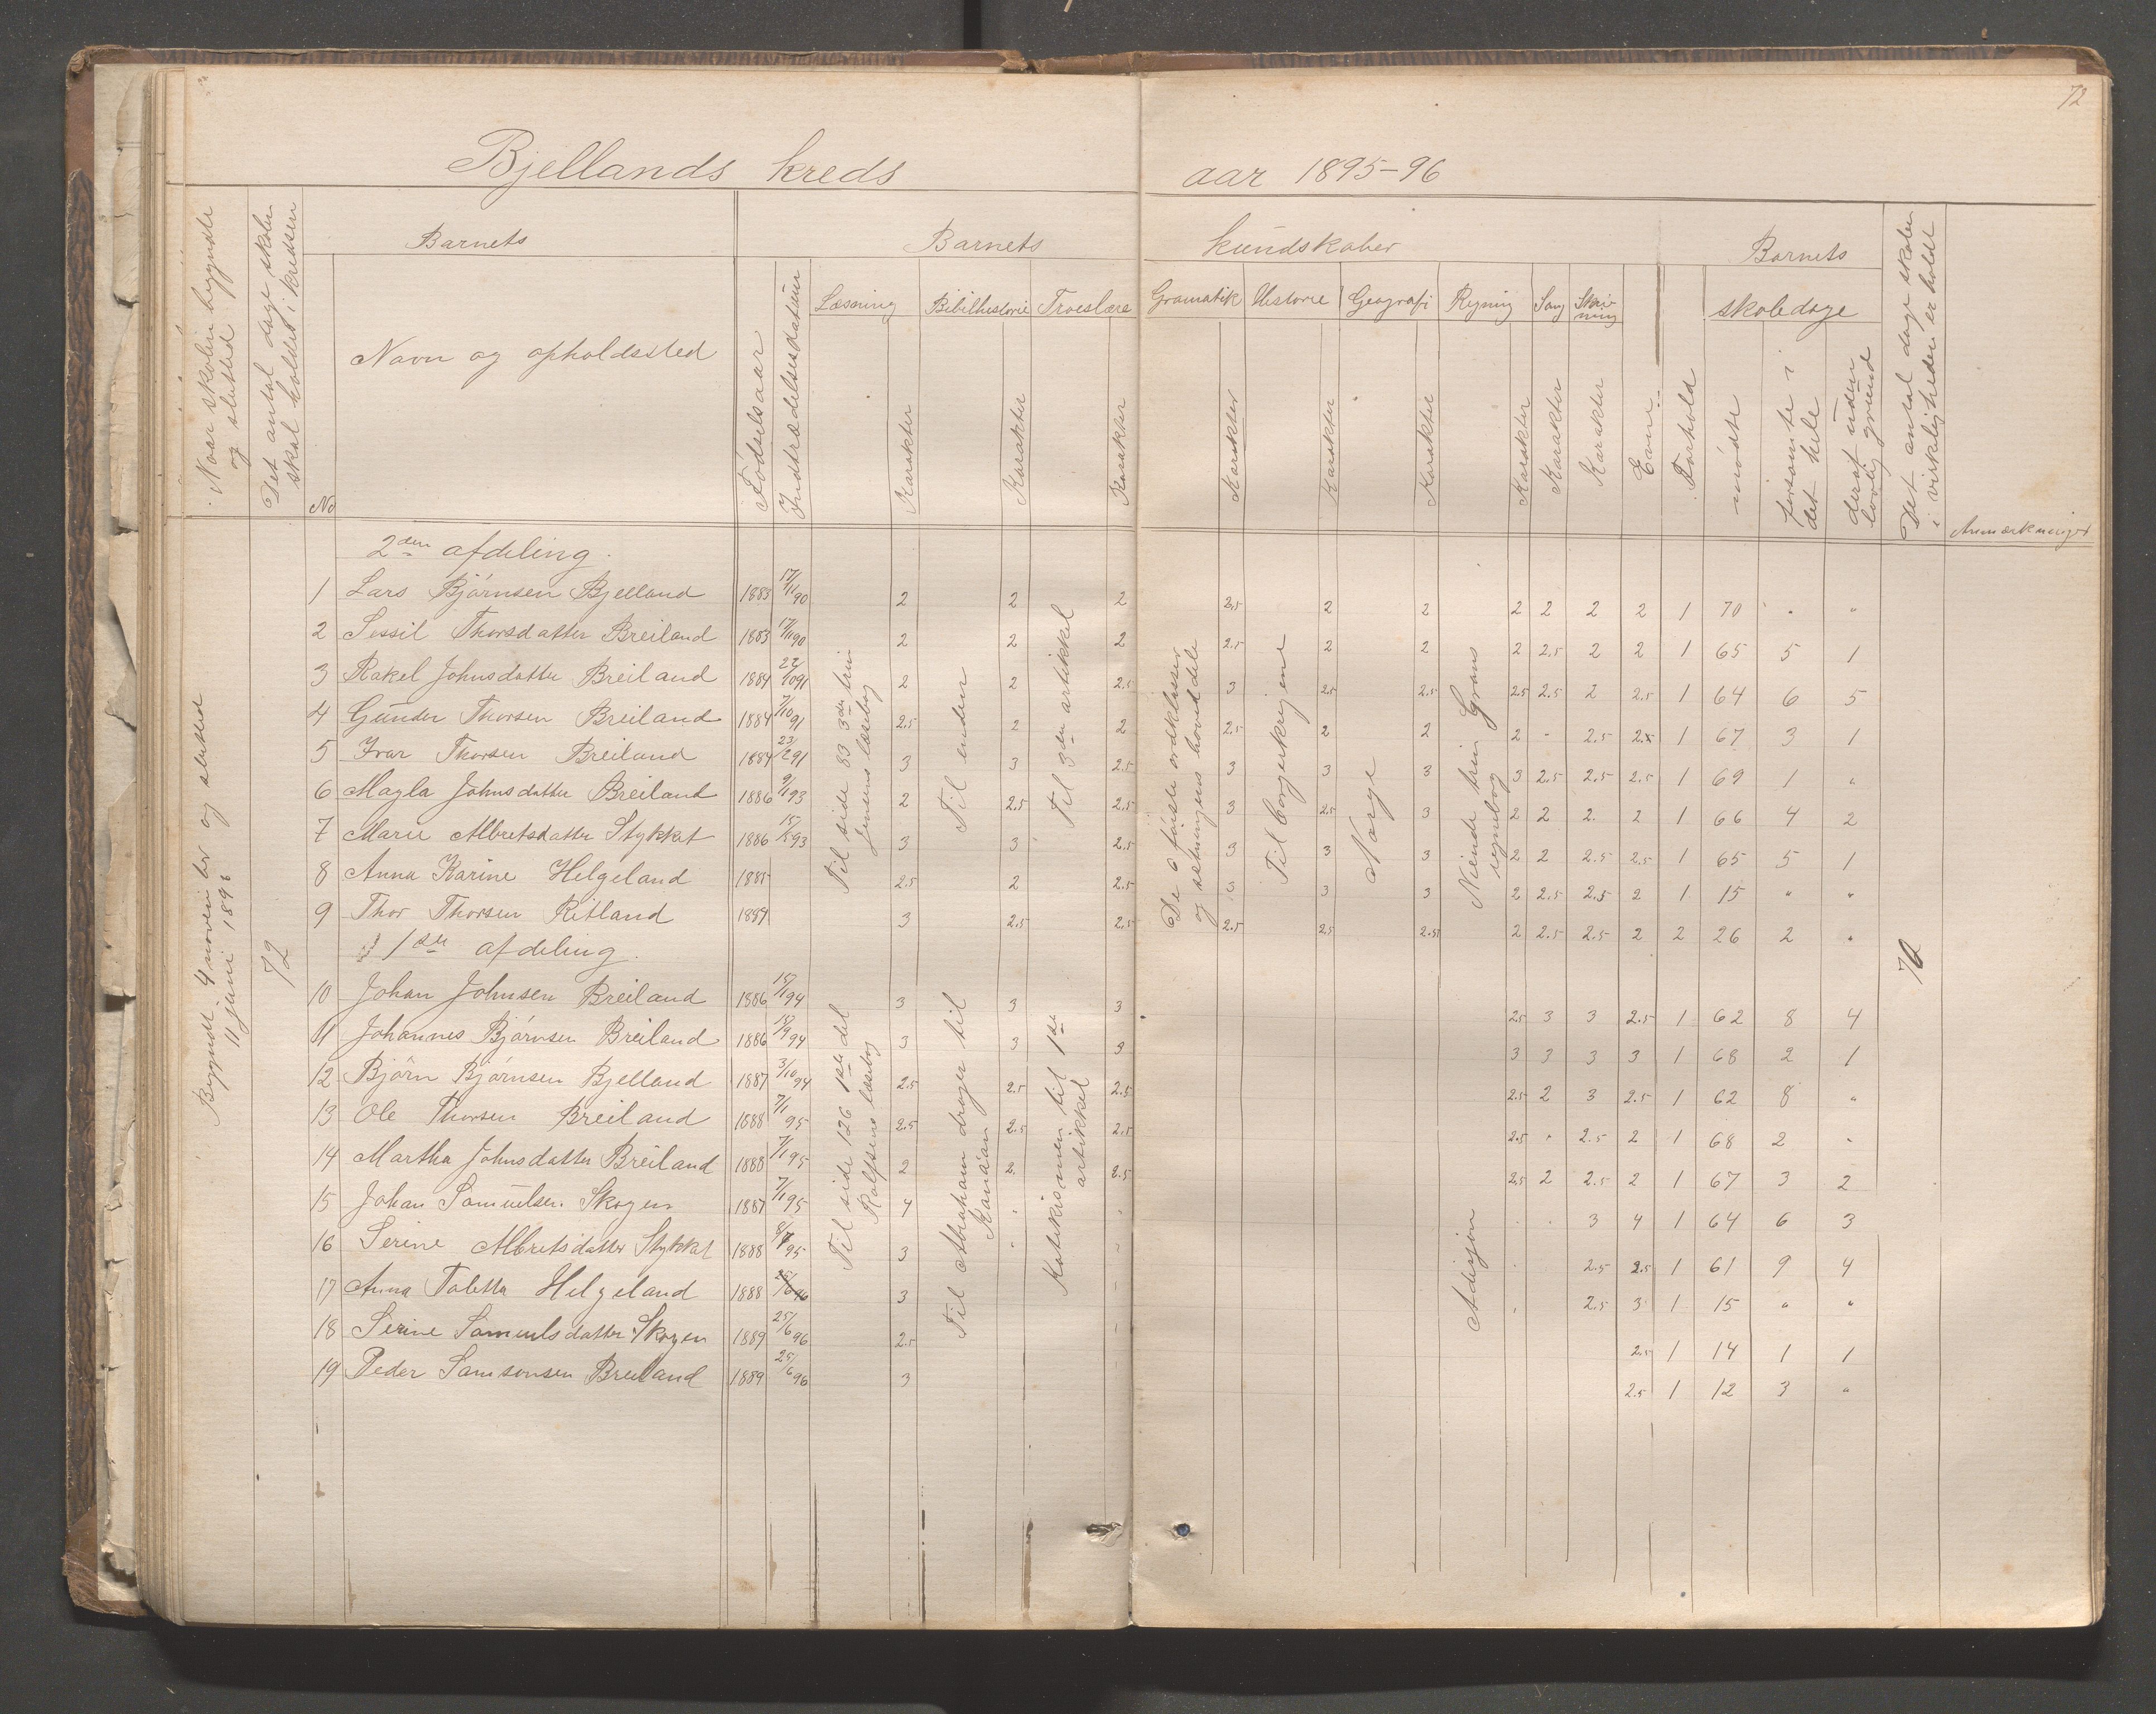 72
Bjellands kreds aar 1895-96
Naar skolen begyndte og slutted
Det antal dage skolen skal holdes i kredsen
No
Barnets
Navn og opholdssted
Fødselsaar
Indtrædelsesdatum
Barnets kundskaber
Læsning Karakter
Bibelhistorie Karakter
Troeslære Karakter
Gramatik Karakter
Historie Karakter
Geografi Karakter
Regning Karakter
Sang Karakter
Skrivning Karakter
Evne
Forhold
Barnets skoledage
mødte
forsømte i det hele
deraf uden lovlig grund
Det antal dage skolen i virkeligheden er holdt
Anmærkninger
Begyndt 4 november og slutted 11 juni 1896
72
2den afdeling.
Til side 83 3die trin Jensens læsebog
Til enden
Til 3den artikkel
De 6 første ordklasser og sætningens hoveddele
Til borgerkrigene
Norge
Niende trin Grans regnebog
76
1 Lars Bjørnsen Bjelland 1883 17/11 90 2 2 2 2.5 2 2 2 2 2 2 1 70 " "
2 Sessil Thorsdatter Breiland 1883 17/11 90 2 2 2 2.5 2 2 2 2.5 2 2 1 65 5 1
3 Rakel Johnsdatter Breiland 1884 22/10 91 2 2 2.5 3 2.5 2.5 2.5 2.5 2 2.5 1 64 6 5
4 Gunder Thorsen Breiland 1884 7/10 91 2.5 2 2 2.5 2 2 2 - 2.5 2.5 1 67 3 1
5 Ivar Thorsen Breiland 1884 23/2 91 3 3 2.5 3 3 3 3 2.5 2.5 2.5 1 69 1 "
6 Magla Johnsdatter Breiland 1886 9/1 93 2 2.5 2.5 3 2.5 3 2 2 2 2 1 66 4 2
7 Marie Albretsdatter Stykket 1886 15/5 93 3 3 2.5 3 3 3 2 2 2.5 2.5 1 65 5 1
8 Anna Karine Helgeland 1885 2.5 2 2.5 3 3 3 2 2.5 2.5 2 1 15 " "
9 Thor Thorsen Ritland 1884 3 2.5 2.5 2.5 2.5 2.5 2 2.5 2.5 2 2 26 2 "
1ste afdeling.
Til side 126 1ste del Rolfsens læsebog
Til Abraham drager til Kanaan
Katekismen til 1ste artikkel
Adisjon
10 Johan Johnsen Breiland 1886 15/1 94 3 3 3 2.5 3 3 2.5 1 62 8 4
11 Johannes Bjørnsen Breiland 1886 18/9 94 3 3 3 3 3 3 3 1 68 2 1
12 Bjørn Bjørnsen Bjelland 1887 3/10 94 2.5 2.5 2.5 2.5 2 3 2.5 1 62 8 "
13 Ole Thorsen Breiland 1888 7/1 95 2.5 2.5 2.5 2.5 " 2.5 2 1 68 2 "
14 Martha Johnsdatter Breiland 1888 7/1 95 2 2 2.5 2.5 2 2.5 2 1 67 3 2
15 Johan Samuelsen Skogen 1887 7/1 95 4 " " " " 3 4 1 64 6 3
16 Serine Albretsdatter Stykket 1888 8/7 95 3 " " " 2.5 2.5 1 61 9 4
17 Anna Taletta Helgeland 1888 25/6 96 3 " " 2.5 3 1 15 " "
18 Serine Samuelsdatter Skogen 1889 25/6 96 2.5 2.5 1 14 1 1
19 Peder Samsonsen Breiland 1889 25/6 96 3 2.5 1 12 3 "